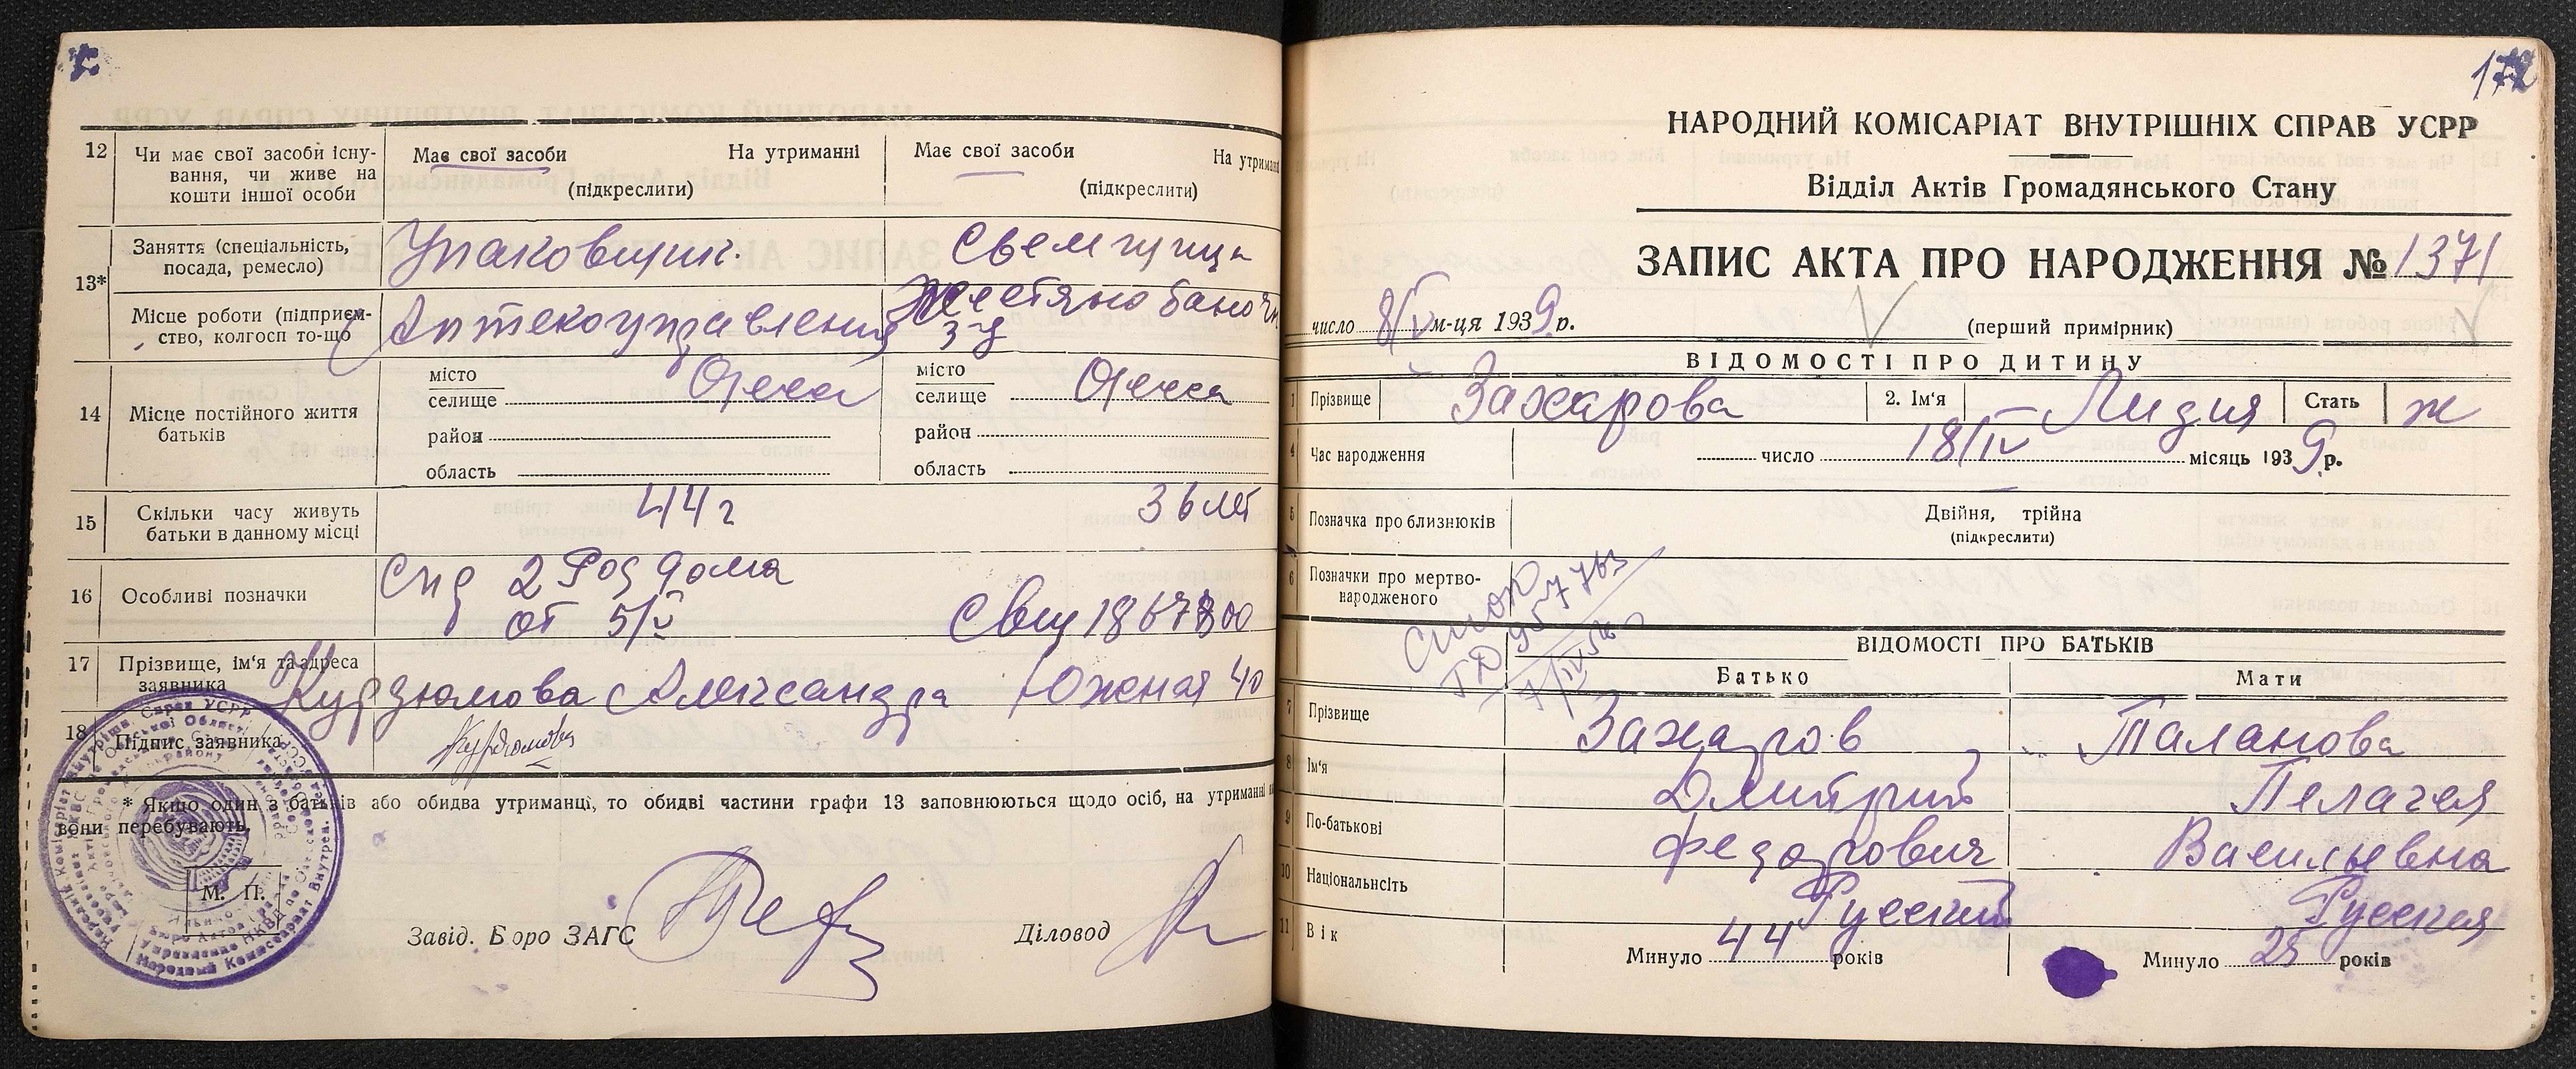 12
Чи має свої засоби існу-
вання, чи живе на
кошти іншої особи
Має свої засоби На утриманні
(підкреслити)
Має свої засоби На утриманні
(підкреслити)
13*
Заняття (спеціальність,
посада, ремесло)
Упаковщик.
Съемщица
Місце роботи (підприєм-
ство, колгосп то-що
Аптекоуправления
Жестяно баночн
з-д
14
Місце постійного життя
батьків
місто
селище Одесса
район
область
місто
селище Одесса
район
область
15
Скільки часу живуть
батьки в данному місці
44 г
3 6 лет
16
Особливі позначки
Спр 2 Род дома
от 5/V
17
Прізвище, ім'я та адреса
заявника
Курдюмова Александра Южная 40
18
Підпис заявника
Курдюмова
* Якщо один з батьків або обидва утриманці, то обидві частини графи 13 заповнюються щодо осіб, на утриманні
вони перебувають.
М. П.
Завід. Бюро ЗАГС
Діловод
172
НАРОДНИЙ КОМІСАРІАТ ВНУТРІШНІХ СПРАВ УСРР
Відділ Актів Громадянського Стану
ЗАПИС АКТА ПРО НАРОДЖЕННЯ № 1371
число 8/V м-ця 1939 р.
(перший примірник)
ВІДОМОСТІ ПРО ДИТИНУ
1 Прізвище Захарова 2. Ім'я Лидия Стать ж
4 Час народження число 18/IV місяць 1939 р.
5 Позначка про близнюків Двійня, трійна
(підкреслити)
6 Позначки про мертво-
народженого
ВІДОМОСТІ ПРО БАТЬКІВ
Батько Мати
7 Прізвище Захаров Таланова
8 Ім'я Дмитрий Пелагея
9 По-батькові Федорович Васильевна
10 Національність Русский Русская
11 Вік Минуло 44 років Минуло 25 років